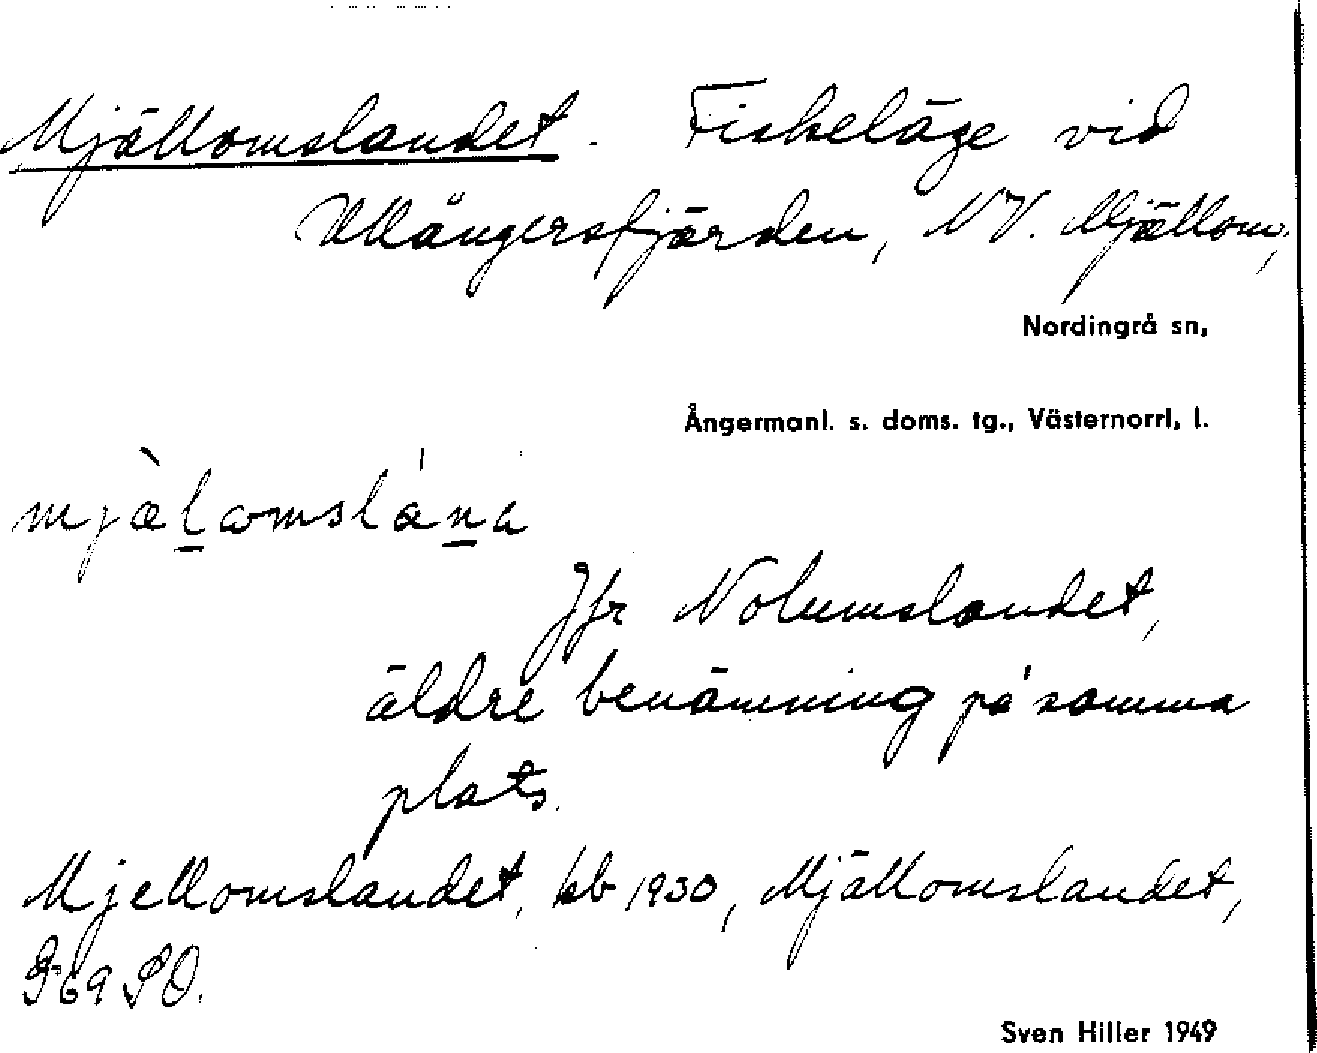 Mjällomslandet. Fiskeläge vid
Ullångersfjärden, NV. Mjällom,
Nordingrå sn,
Ångermanl. s. doms. tg., Västernorrl, l.
Jfr Nolumslandet,
äldre benämning på samma
plats.
Mjellomslandet, kb 1930, Mjällomslandet,
G 69 SO.
Sven Hiller 1949